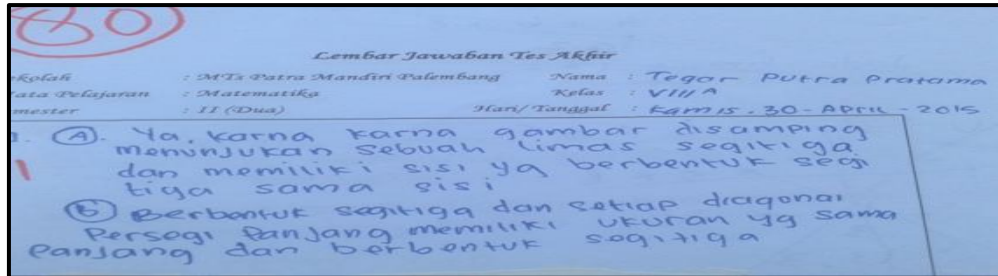 80
Lembar Jawaban Tes Akhir
ekolah : MTs Patra Mandiri Palembang Nama : Tegar Putra Pratama
ata Pelajaran : Matematika Kelas : VIII A
mester : II (Dua) Hari/ Tanggal : Kamis . 30 - April - 2015
1. A. Ya, karna karna gambar disamping
menunjukan sebuah limas segitiga.
dan memiliki sisi yg berbentuk segi
tiga sama sisi
B Berbentuk segitiga dan setiap diagonal
Persegi Panjang memiliki ukuran yg sama
Panjang dan berbentuk segitiga